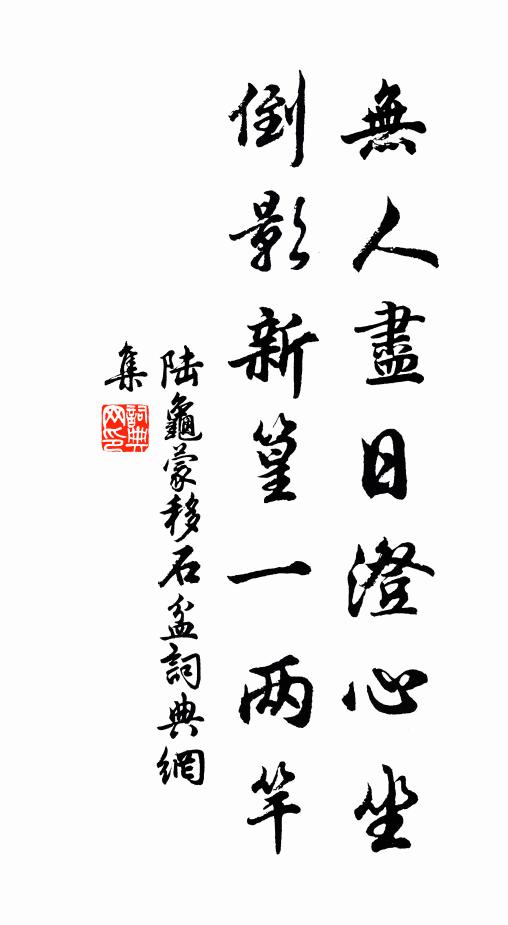 無人盡日澄心坐
倒影新篁一两竿
陆龜蒙移石盆詞典網
集
詞典网印